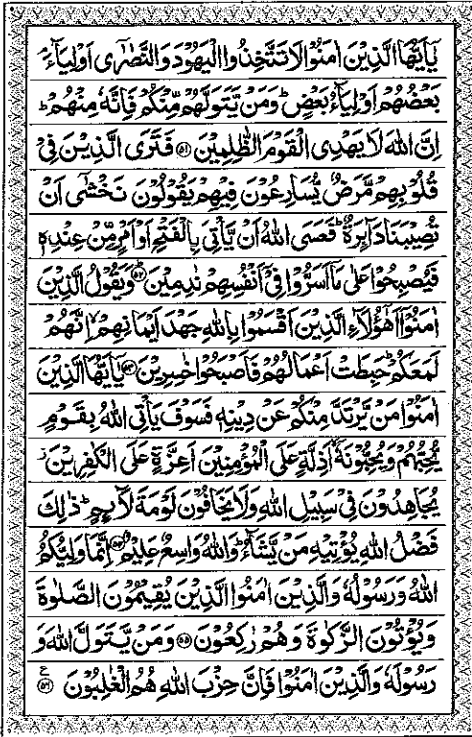 يٰۤاَيُّهَا الَّذِيْنَ اٰمَنُوْا لَا تَتَّخِذُوا الْيَهُوْدَ وَالنَّصٰرٰۤى اَوْلِيَآءَ ۘ
بَعْضُهُمْ اَوْلِيَآءُ بَعْضٍ ؕ وَمَنْ يَّتَوَلَّهُمْ مِّنْكُمْ فَاِنَّهٗ مِنْهُمْ ؕ
اِنَّ اللّٰهَ لَا يَهْدِى الْقَوْمَ الظّٰلِمِيْنَ ﴿۵۱﴾ فَتَرَى الَّذِيْنَ فِىْ
قُلُوْبِهِمْ مَّرَضٌ يُّسَارِعُوْنَ فِيْهِمْ يَقُوْلُوْنَ نَخْشٰٓى اَنْ
تُصِيْبَنَا دَآئِرَةٌ ؕ فَعَسَى اللّٰهُ اَنْ يَّاْتِىَ بِالْفَتْحِ اَوْ اَمْرٍ مِّنْ عِنْدِهٖ
فَيُصْبِحُوْا عَلٰى مَاۤ اَسَرُّوْا فِىْۤ اَنْفُسِهِمْ نٰدِمِيْنَ ﴿۵۲﴾ وَيَقُوْلُ الَّذِيْنَ
اٰمَنُوْۤا اَهٰٓؤُلَآءِ الَّذِيْنَ اَقْسَمُوْا بِاللّٰهِ جَهْدَ اَيْمَانِهِمْ ۙ اِنَّهُمْ
لَمَعَكُمْ ؕ حَبِطَتْ اَعْمَالُهُمْ فَاَصْبَحُوْا خٰسِرِيْنَ ﴿۵۳﴾ يٰۤاَيُّهَا الَّذِيْنَ
اٰمَنُوْا مَنْ يَّرْتَدَّ مِنْكُمْ عَنْ دِيْنِهٖ فَسَوْفَ يَاْتِى اللّٰهُ بِقَوْمٍ
يُّحِبُّهُمْ وَيُحِبُّوْنَهٗۤ ۙ اَذِلَّةٍ عَلَى الْمُؤْمِنِيْنَ اَعِزَّةٍ عَلَى الْكٰفِرِيْنَ ؗ
يُجَاهِدُوْنَ فِىْ سَبِيْلِ اللّٰهِ وَلَا يَخَافُوْنَ لَوْمَةَ لَآئِمٍ ؕ ذٰلِكَ
فَضْلُ اللّٰهِ يُؤْتِيْهِ مَنْ يَّشَآءُ ؕ وَاللّٰهُ وَاسِعٌ عَلِيْمٌ ﴿۵۴﴾ اِنَّمَا وَلِيُّكُمُ
اللّٰهُ وَرَسُوْلُهٗ وَالَّذِيْنَ اٰمَنُوا الَّذِيْنَ يُقِيْمُوْنَ الصَّلٰوةَ
وَيُؤْتُوْنَ الزَّكٰوةَ وَهُمْ رٰكِعُوْنَ ﴿۵۵﴾ وَمَنْ يَّتَوَلَّ اللّٰهَ وَ
رَسُوْلَهٗ وَالَّذِيْنَ اٰمَنُوْا فَاِنَّ حِزْبَ اللّٰهِ هُمُ الْغٰلِبُوْنَ ﴿۵۶﴾ ع